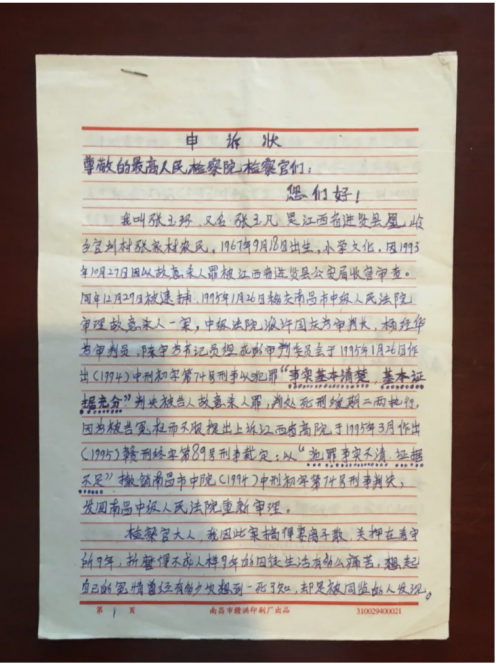 申诉状
尊敬的最高人民检察院检察官们:
您们好!
我叫张玉环,又名张玉凡是江西省进贤县凰岭
乡官圳村张家村农民,1967年9月18日出生,小学文化。因1993
年10月27日因以故意杀人罪被江西省进贤县公安局收容审查。
同年12月29日被逮捕,1995年1月26日移交南昌市中级人民法院
审理故意杀人一案,中级法院派许国庆为审判长,杨经华
为审判员,陈军为书记员组成的审判委员会于1995年1月26日作
出(1994)中刑初字第74号刑事以犯罪“事实基本清楚,基本证
据充分”判决被告人故意杀人罪,判处死刑缓期二两执行,
因为被告冤枉而不服提出上诉江西省高院于1995年3月作出
(1995)赣刑终字第89号刑事裁定:以“犯罪事实不清,证据
不足”撤销南昌市中院(1994)中刑初字第74号刑事判决,
发回南昌中级人民法院重新审理。
检察官大人,我因此案搞得妻离子散,关押在看守
所9年,折磨得不成人样9年的囚徒生活有多么痛苦,想起
自己的冤情曾经有多少次想到一死了知,却是被同监的人发现。
第 1 页
南昌市赣洪印刷厂出品
310029400021